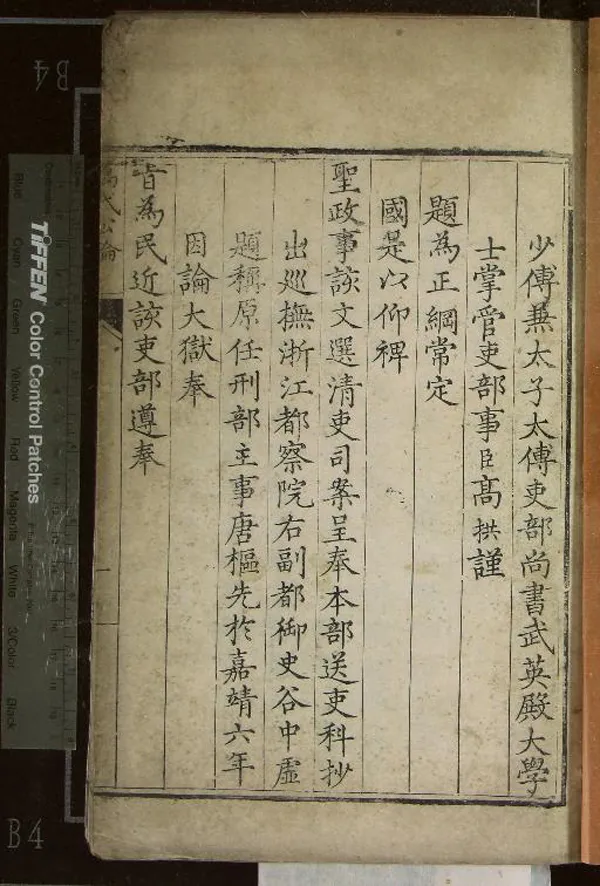 少傅兼太子太傅吏部尚書武英殿大學
士掌管吏部事臣高拱謹
題為正綱常定
國是以仰裨
聖政事該文選清吏司案呈奉本部送吏科抄
出巡撫浙江都察院右副都御史谷中虛
題稱原任刑部主事唐樞先於嘉靖六年
因論大獄奉
旨為民近該吏部遵奉
TIFFEN Color Control Patches
Blue Cyan Green Yellow Red Magenta White 3/Color Black
B4
B4